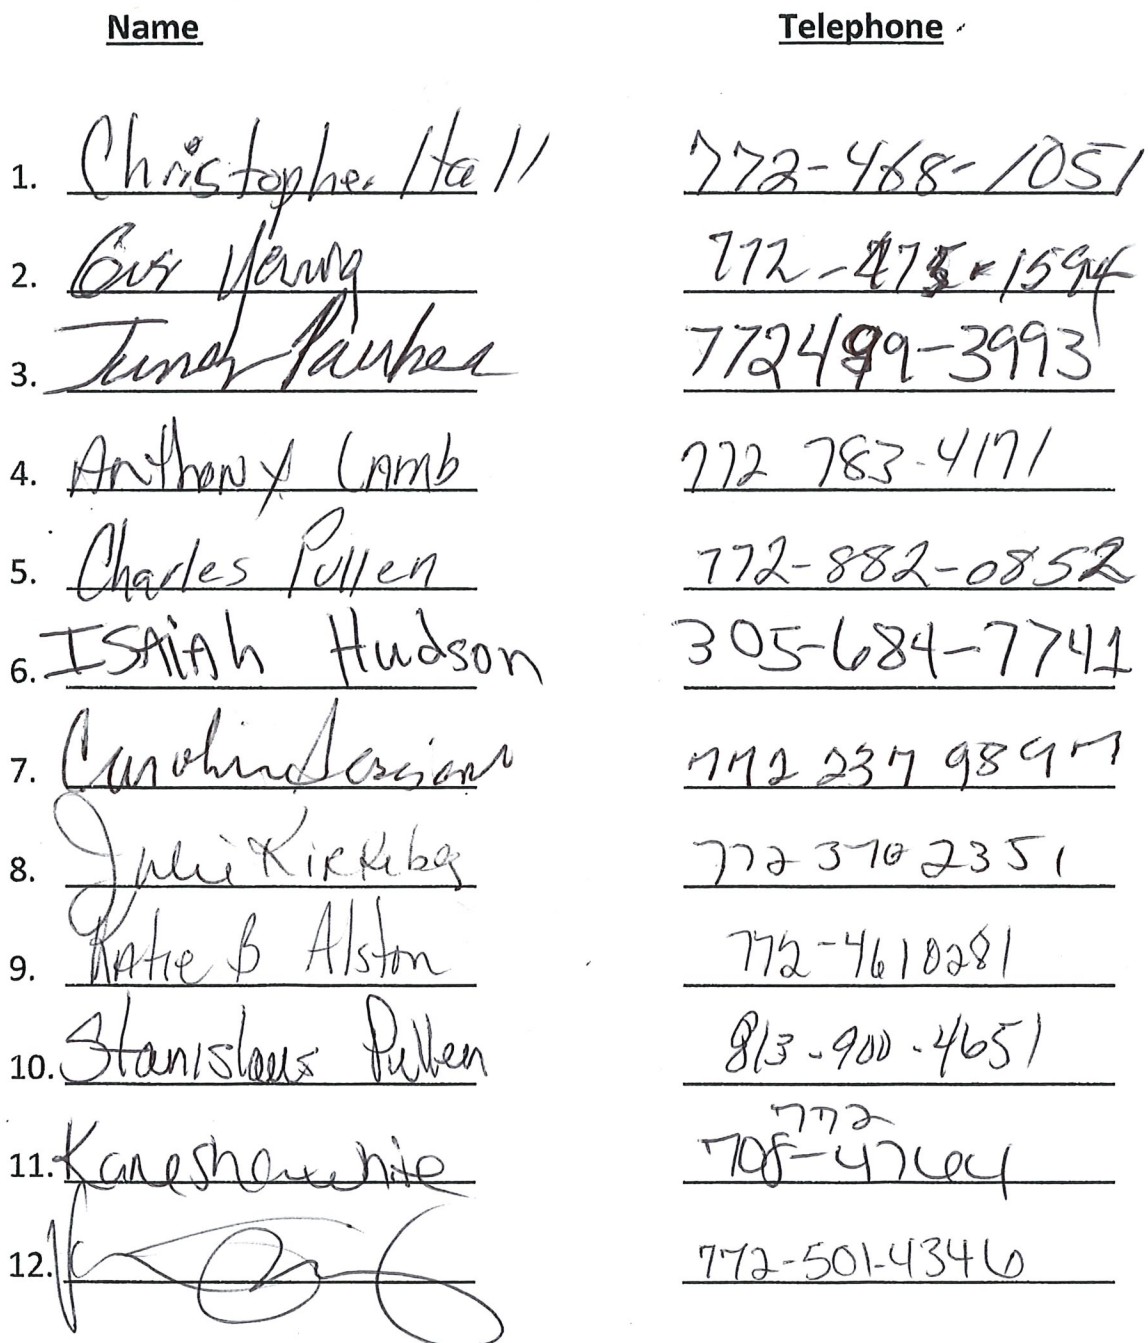 Name Telephone
1. Christopher Hall 772-468-1051
2. Gus Young 772-475-1594
3. 772499-3993
4. Anthony Lamb 772 783-4171
5. Charles Pullen 772-882-0852
6. ISAiAh Hudson 305-684-7741
7. 772 237 9897
8. Julie Kirkeby 772 370 2351
9. Katie B Alston 772-4610281
10. Stanislaus Pullen 813-900-4651
772
11. Kanesha white 708-4764
12. 772-501-4346